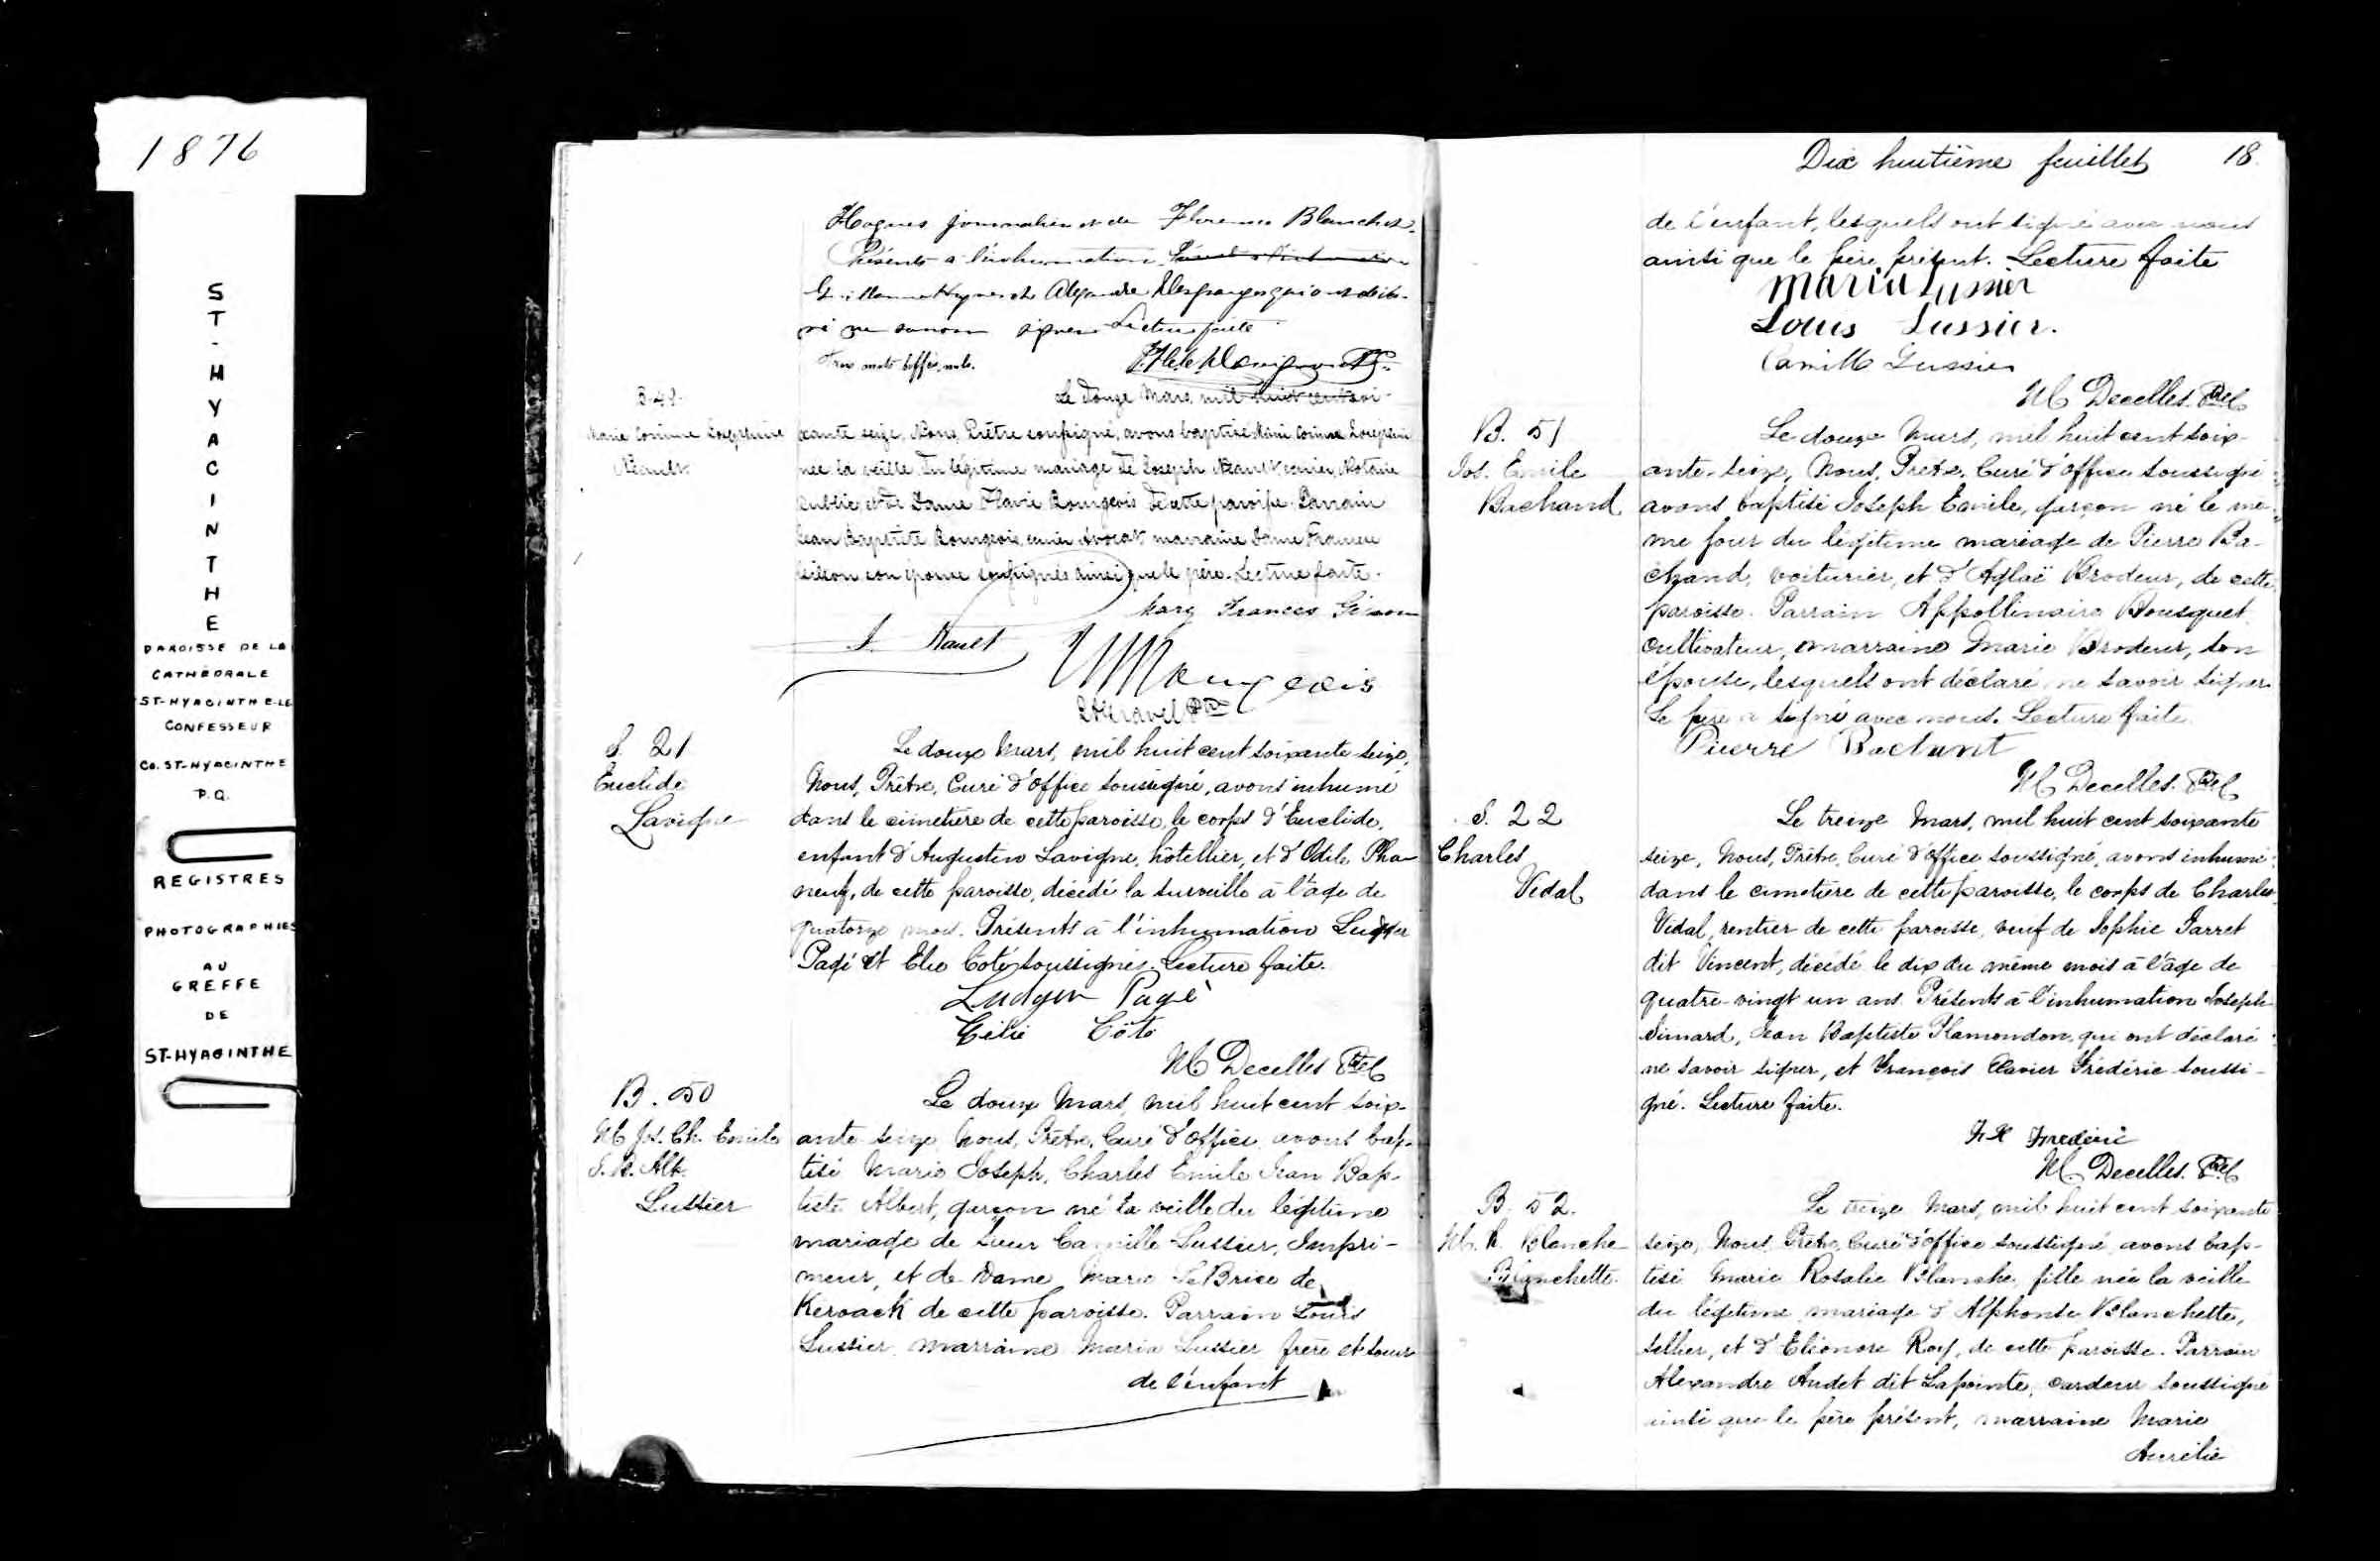 1876
ST-HYACINTHE
PAROISSE DE LA
CATHÉDRALE
ST-HYACINTHE-LE
CONFESSEUR
Co. ST-HYACINTHE
P.Q.
REGISTRES
PHOTOGRAPHIES
AU
GREFFE
DE
ST-HYACINTHE
journalier et de Florence Blanchet.
Présents à l'inhumation
et Alexandre qui ont décla-
ré ne savoir signer Lecture faite
Trois mots biffés nuls.
B. 49.
Marie Corinne Josephine
Nault
Le douze Mars mil huit cent soi-
xante seize, Nous, Prêtre soussigné, avons baptisé Marie Corinne Josephine
née la veille du légitime mariage de Joseph Nault écuier, Notaire
Public, et de Dame Flavie Bourgeois de cette paroisse. Parrain
Jean Baptiste Bourgeois, écuier Avocat marraine Dame Frances
son épouse soussignés ainsi que le père. Lecture faite.
Mary Frances
J. Nault
Bourgeois
Gravel Ptre
S. 21
Euclide
Lavigne
Le douze Mars, mil huit cent soixante seize,
Nous, Prêtre, Curé d'office soussigné, avons inhumé
dans le cimetière de cette paroisse, le corps d'Euclide,
enfant d'Augustin Lavigne, hôtellier, et d'Odile Pha-
neuf, de cette paroisse, décédé la surveille à l'âge de
quatorze mois. Présents à l'inhumation Ludger
Pagé et Elie Coté soussignés. Lecture faite.
Ludger Pagé
Côté
M Decelles Ptre C
B. 50
M Jos. Ch. Emile
J. B. Alb.
Lussier
Le douze Mars, mil huit cent soix-
ante seize Nous, Prêtre, Curé d'office, avons bap-
tisé Marie Joseph, Charles Emile Jean Bap-
tiste Albert, garçon né la veille du légitime
mariage de Sieur Camille Lussier, Impri-
meur, et de Dame Marie LeBrice de
Keroack de cette paroisse. Parrain Louis
Lussier, marraine Maria Lussier frère et soeur
de l'enfant
Dix huitième feuillet 18.
de l'enfant, lesquels ont signé avec nous
ainsi que le père présent. Lecture faite
Maria Lussier
Louis Lussier.
Camille Lussier
M Decelles. Ptre C
B. 51
Jos. Emile
Bachand
Le douze Mars, mil huit cent soix-
ante-seize, Nous, Prêtre, Curé d'office soussigné
avons baptisé Joseph Emile, garçon né le mê-
me jour du légitime mariage de Pierre Ba-
chand, voiturier, et d'Aglaë Brodeur, de cette
paroisse. Parrain Appollinaire Bousquet
cultivateur, marraine Marie Brodeur, son
épouse, lesquels ont déclaré ne savoir signer.
Le père a signé avec nous. Lecture faite.
Pierre Bachant
M Decelles. Ptre C
S. 22
Charles
Vidal
Le treize Mars, mil huit cent soixante
seize, Nous, Prêtre, Curé d'office soussigné, avons inhumé
dans le cimetière de cette paroisse, le corps de Charles
Vidal, rentier de cette paroisse, veuf de Sophie Jarret
dit Vincent, décédé le dix du même mois à l'âge de
quatre-vingt un ans. Présents à l'inhumation Joseph
Simard, Jean Baptiste Plamondon, qui ont déclaré
ne savoir signer, et François Xavier Frédéric soussi-
gné. Lecture faite.
F X Frederic
M Decelles. Ptre C
B. 52.
M. R. Blanche
Blanchette.
Le treize Mars, mil huit cent soixante
seize, Nous, Prêtre, Curé d'office soussigné avons bap-
tisé Marie Rosalie Blanche, fille née la veille
du légitime mariage d'Alphonse Blanchette,
sellier, et d'Eléonore Roy, de cette paroisse. Parrain
Alexandre Audet dit Lapointe, cardeur soussigné
ainsi que le père présent, marraine Marie
Aurélie